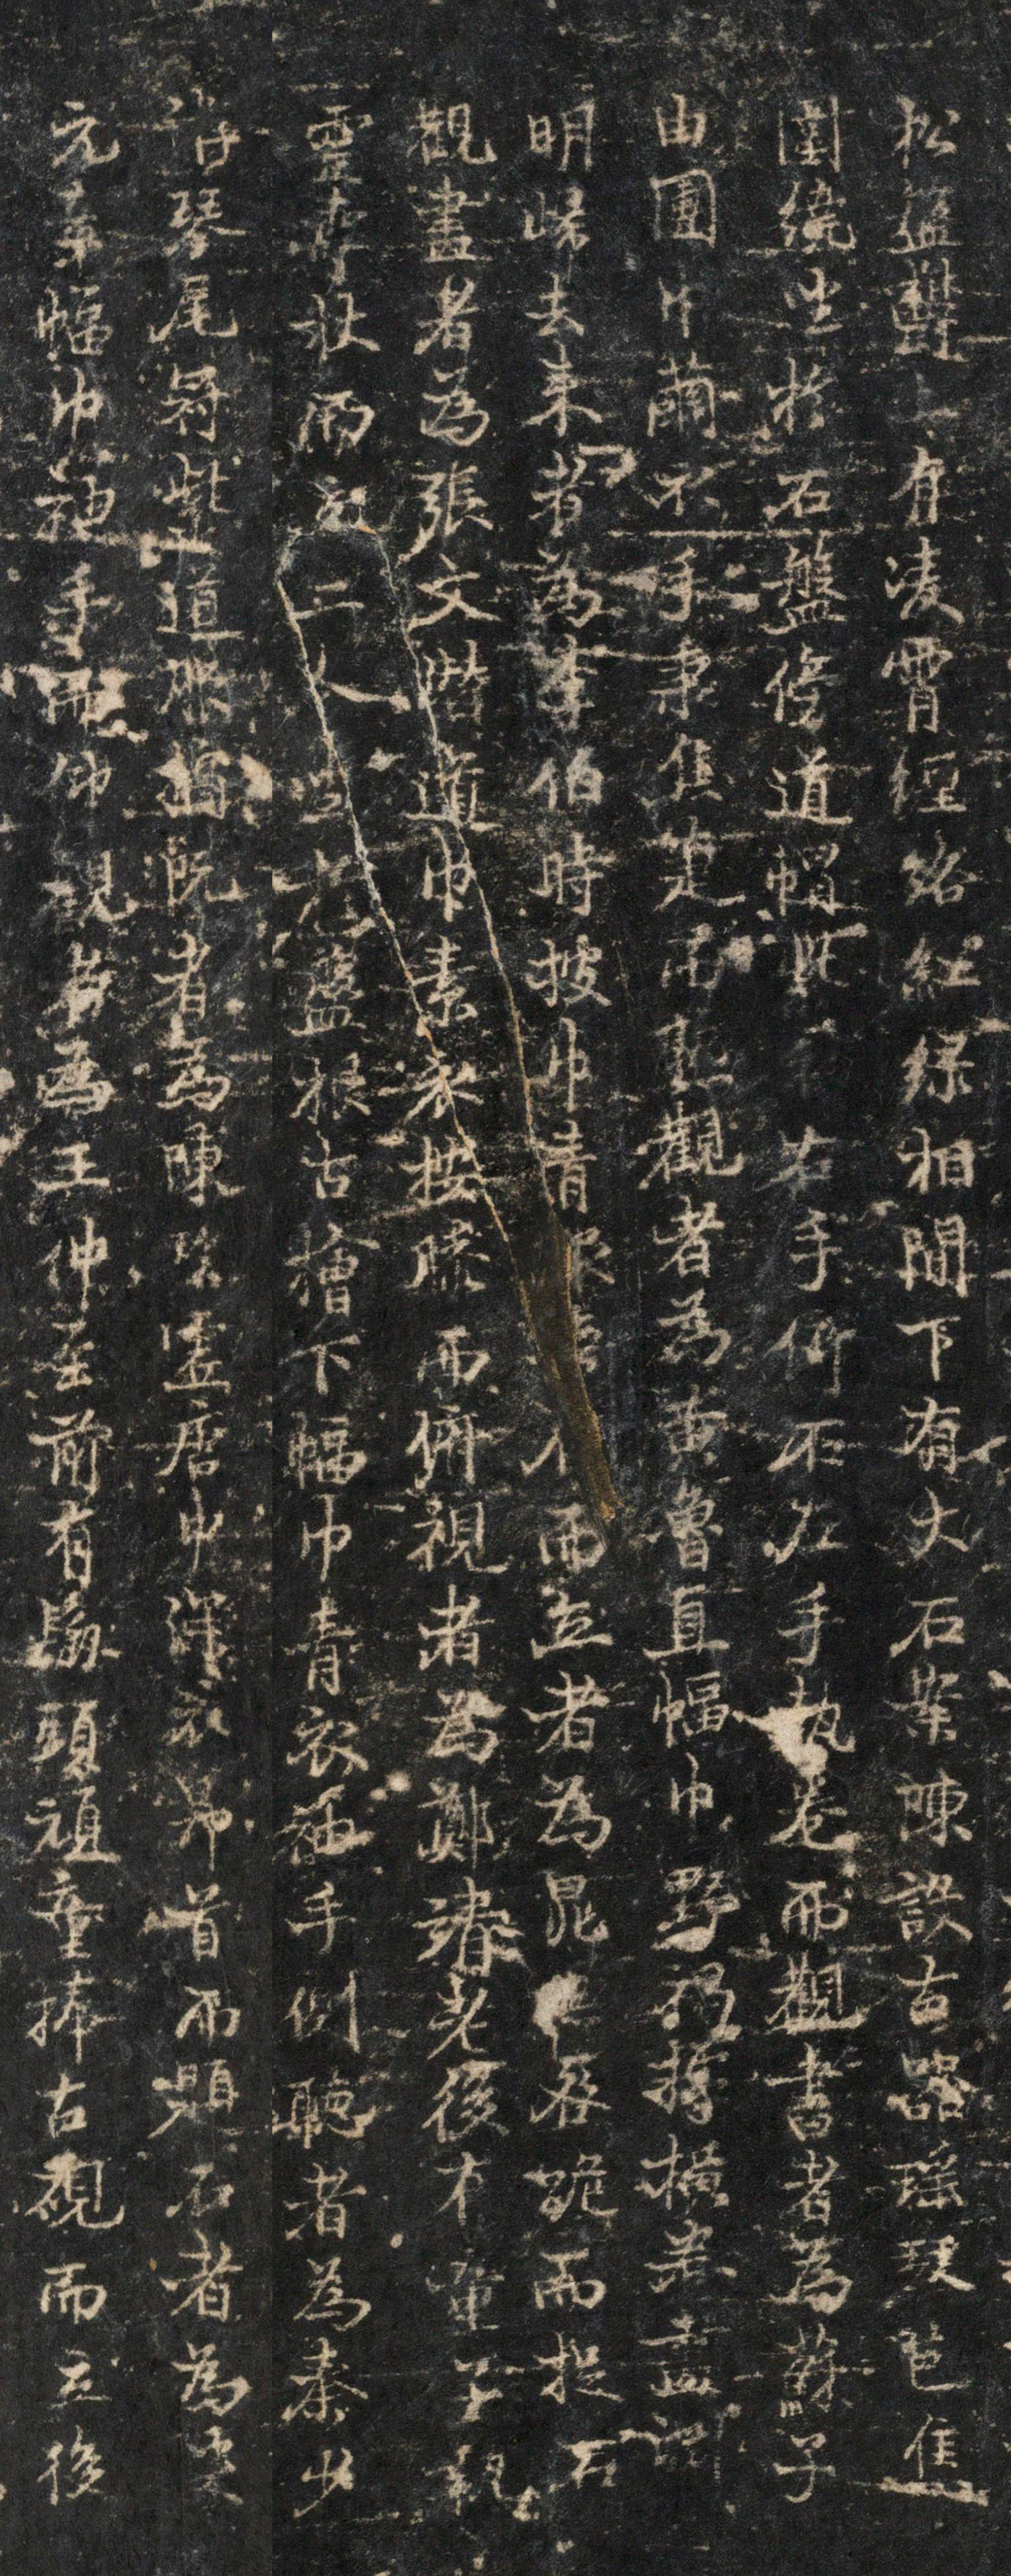 松盤欝上有凌霄經絡紅綠相間下有大石案陳設古器瑤琴芭焦
圍繞坐於石盤傍道帽紫衣右手倚石左手執卷而觀書者為蘇子
由團巾繭衣手秉焦箑而熟觀者為黄魯直幅巾野褐據橫卷畫淵
明歸去来者為李伯時披巾青服肩而立者為晁無咎跪而捉石
觀畫者為張文潛道巾素衣按膝而俯視者為鄭靖老後有童子執
靈壽杖而立二人坐於盤根古檜下幅巾青衣袖手側聽者為秦少
游琴尾冠紫道服摘阮者為陳碧虚唐巾深衣昂首而題石者為米
元章幅巾袖手而仰觀者為王仲至前有頭頑童捧古硯而立後